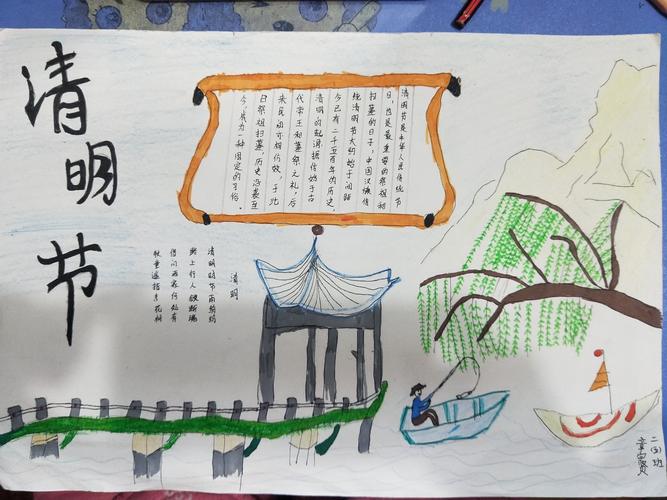 清明节
清明节是中华人民传统节
日，也是最重要的祭祖和
扫墓的日子，中国汉族传
统清明节大约始于周朝
今已有二千五百年的历史，
清明的起源，据传始于古
代帝王和墓祭之礼，后
来民间亦相仿效，于此
日祭祖扫墓，历史沿袭至
今，成为一种固定的习俗。
清明
清明时节雨纷纷
路上行人欲断魂
借问酒家何处有
牧童遥指杏花村